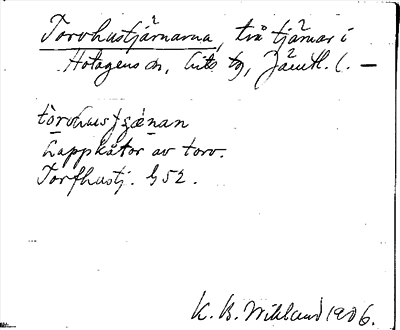 Torvhustjärnarna, två tjärnar i
Hotagens sn, Lits tg, Jämtl. l. —
tòrvhusʃɟænan
Lappkåtor av torv.
Torfhustj. G 52.
K. B. Wiklund 1906.